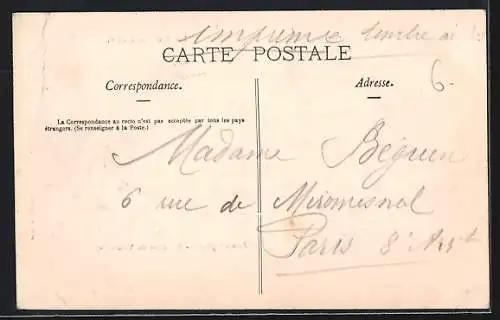 imprimé timbre à
CARTE POSTALE
Correspondance.
Adresse.
6-
La Correspondance au recto n'est pas acceptée par tous les pays
étrangers. (Se renseigner à la Poste.)
Madame Béguen
6 rue de Miromesnol
Paris 8' Arrt